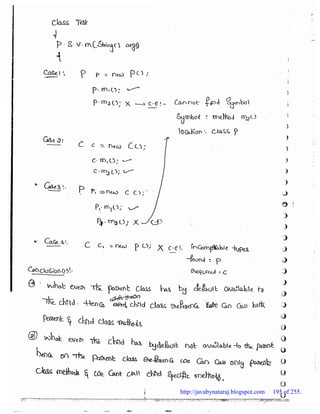 class Test
{
P. S. V. m(String[] args)
{
Case1:  P p = new P();
p.m1(); ✓
p.m2(); X → C.E:- Cannot find symbol
Symbol : method m2()
location: class P
Case 2:  C c = new C();
c.m1(); ✓
c.m2(); ✓
Case 3:  P P1 = new C();
P1.m1(); ✓
P1.m2(); X C.E:
Case 4:  C c1 = new P(); X C.E: incompatible types
found : P
required : C
Conclusions:
① what ever the parent class has by default available to
the child. Hence child class reference we can call both
Parent & child class methods.
② what ever the child has by default not available to the parent
hence on the Parent class reference we can call only parent
class methods & we can't call child specific methods.
http://javabynataraj.blogspot.com 195 of 255.